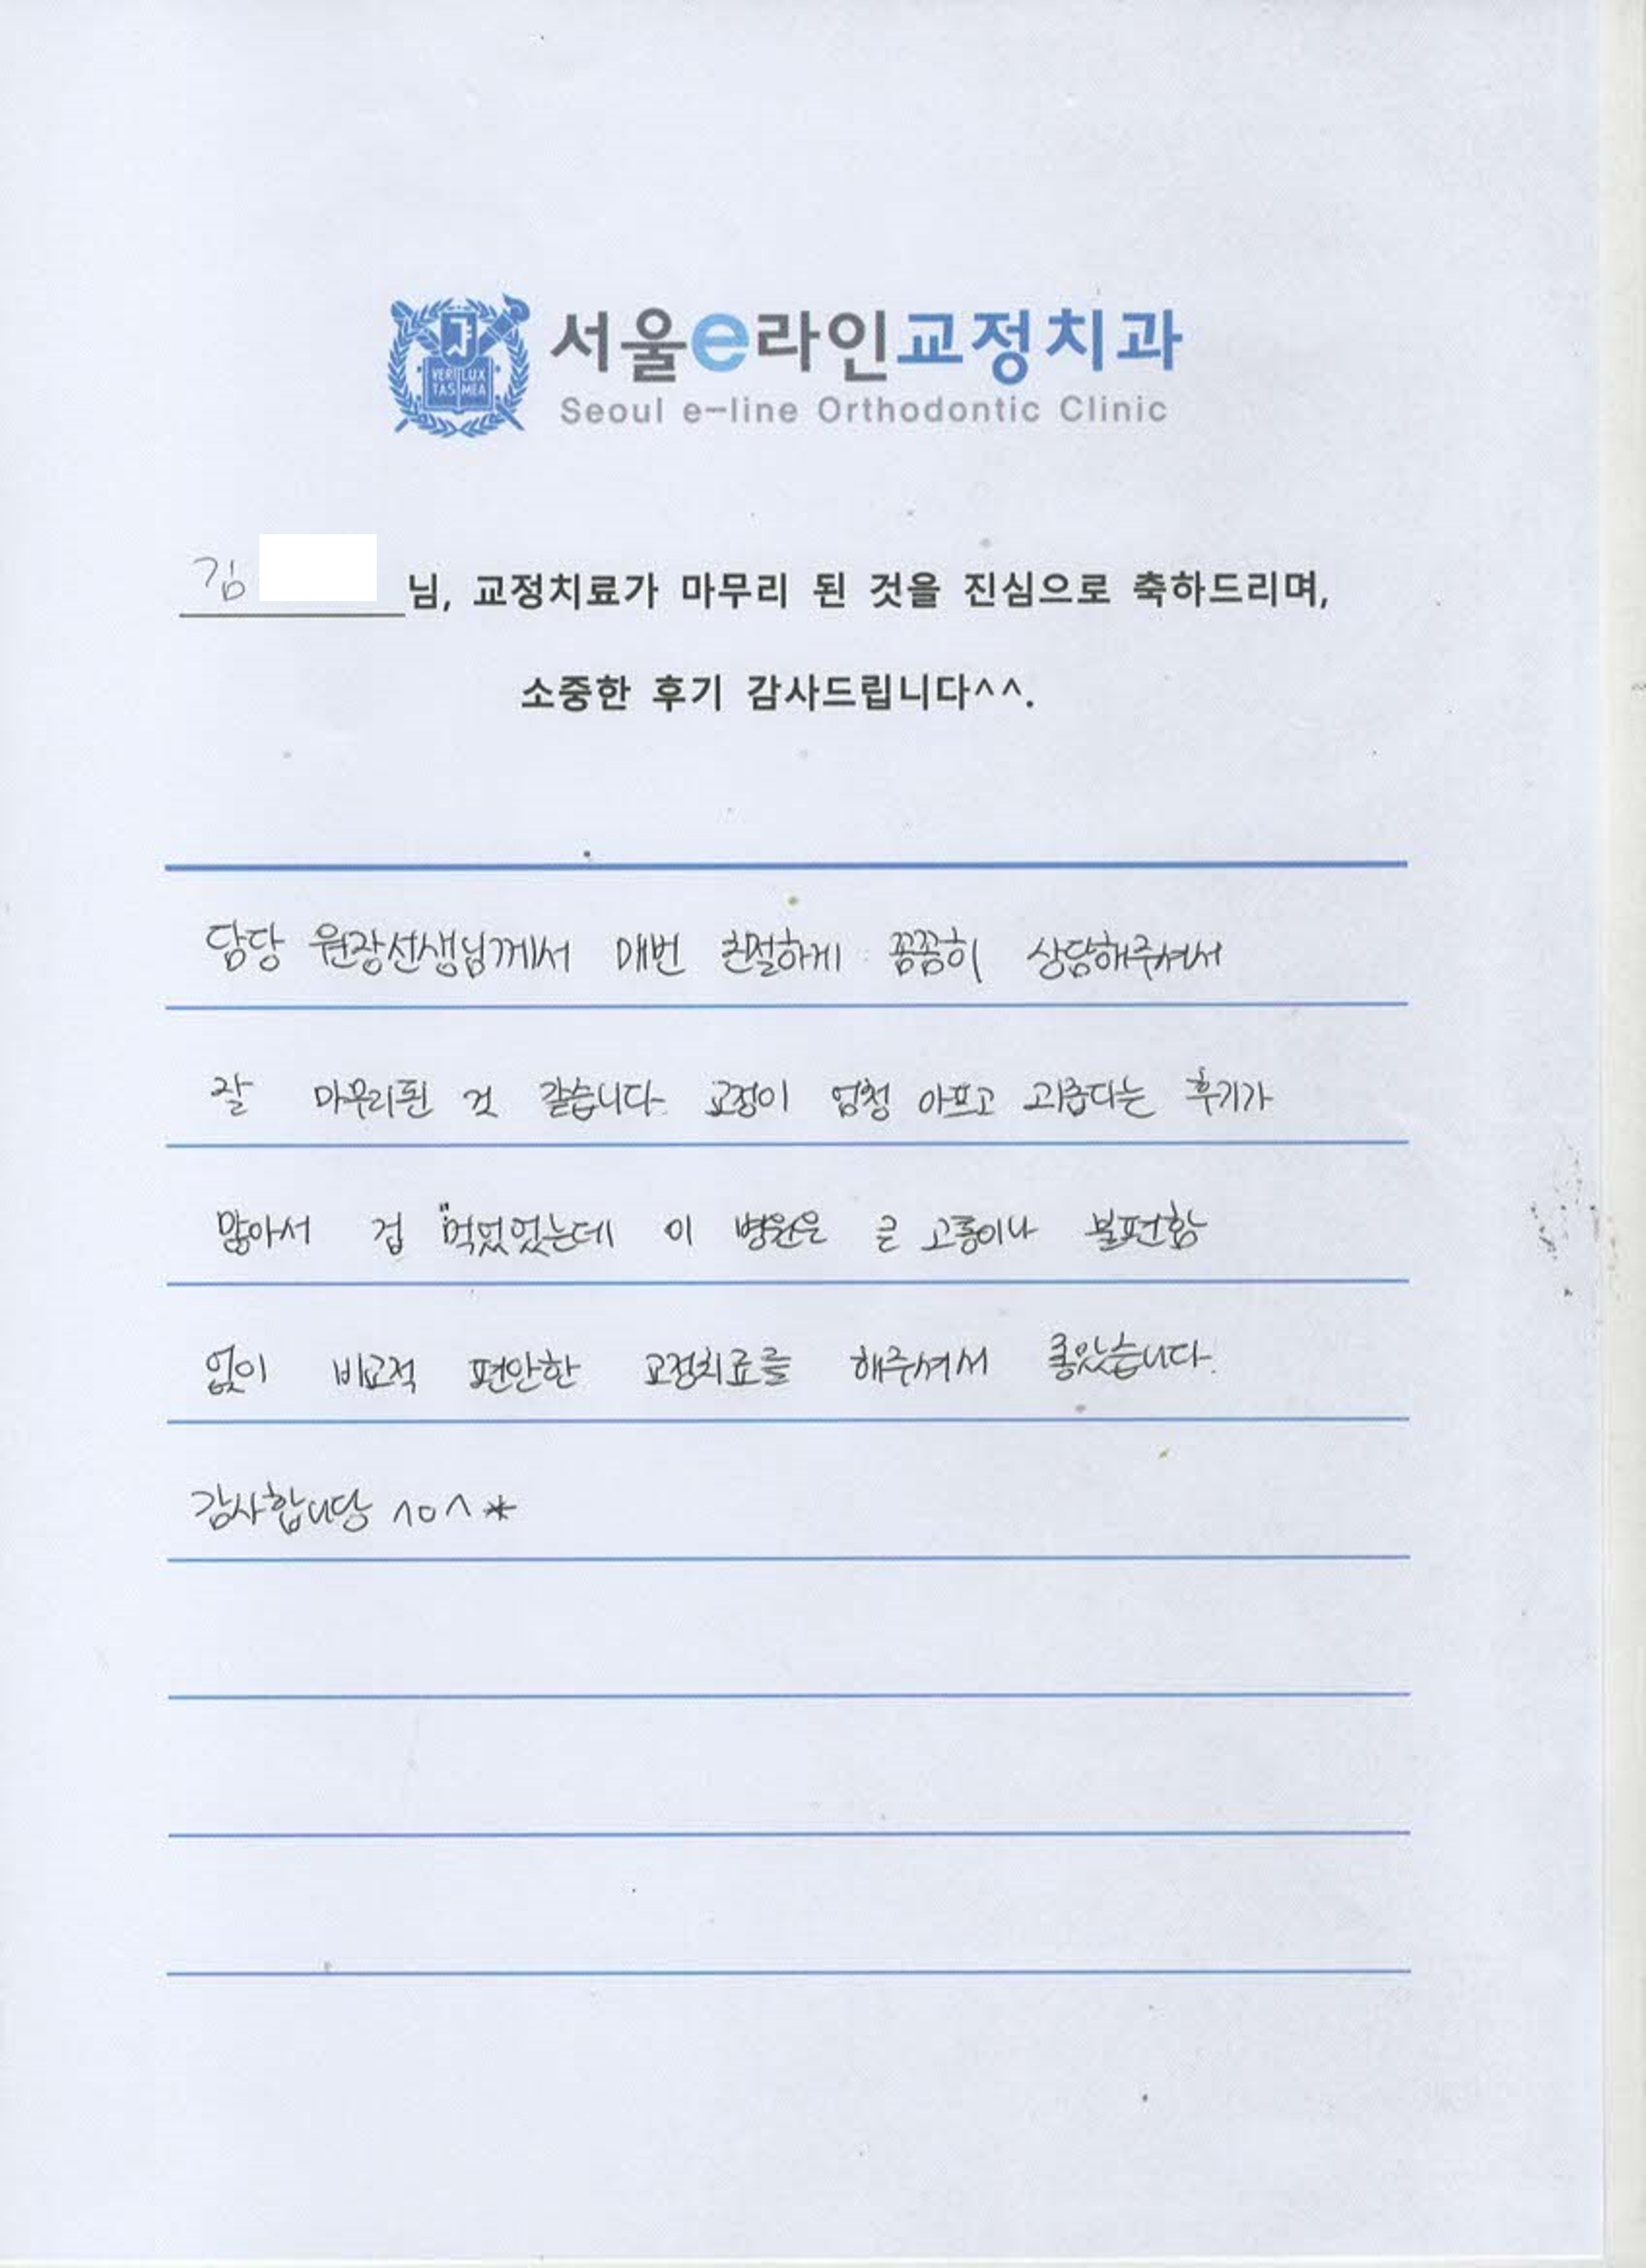 서울e라인교정치과
Seoul e-line Orthodontic Clinic
VERI LUX
TAS MEA
김 님, 교정치료가 마무리 된 것을 진심으로 축하드리며,
소중한 후기 감사드립니다^^.
담당 원장선생님께서 매번 친절하게 꼼꼼히 상담해주셔서
잘 마무리된 것 같습니다 교정이 엄청 아프고 괴롭다는 후기가
많아서 겁 먹었었는데 이 병원은 큰 고통이나 불편함
없이 비교적 편안한 교정치료를 해주셔서 좋았습니다.
감사합니당 ^o^*